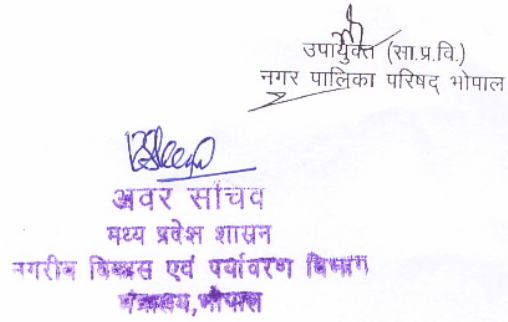 उपायुक्त (सा.प्र.वि.)
नगर पालिका परिषद् भोपाल
अवर सचिव
मध्य प्रदेश शासन
नगरीय विकास एवं पर्यावरण विभाग
मंत्रालय,भोपाल